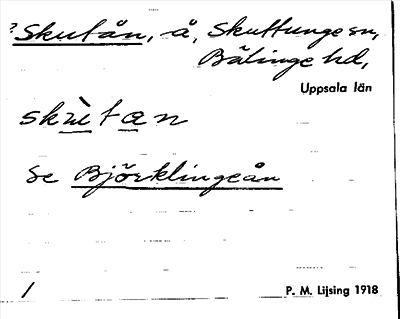 ?Skutån, å, Skuttunge sn,
Bälinge hd,
Uppsala län
skùtan
Se Björklingeån
/ P. M. Lijsing 1918